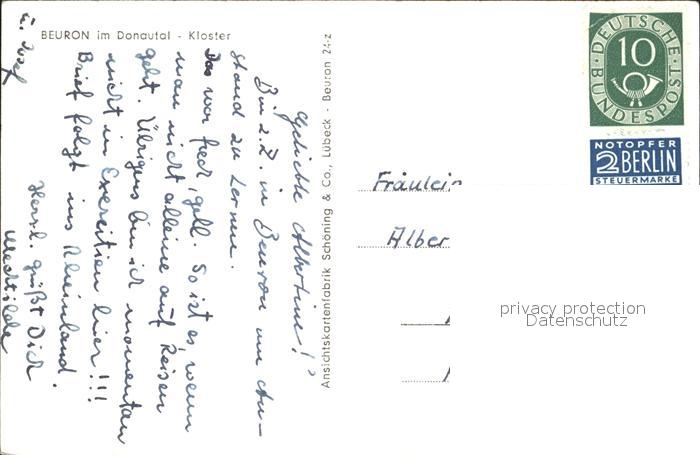 BEURON im Donautal - Kloster
Geliebte Albertin!
Bin z.Z. in Beuron um An-
stand zu lernen.
Das war frech, gell. So ist es, wenn
man nicht alleine auf Reisen
geht. Übrigens bin ich momentan
nicht in Exerzitien hier!!!
Brief folgt ins Rheinland.
Herzl. grüßt Dich
Mechtilde
u. Josef
Ansichtskartenfabrik Schöning & Co., Lübeck - Beuron 24-z
DEUTSCHE BUNDESPOST
10
NOTOPFER
2 BERLIN
STEUERMARKE
Fräulein
Alber
privacy protection
Datenschutz